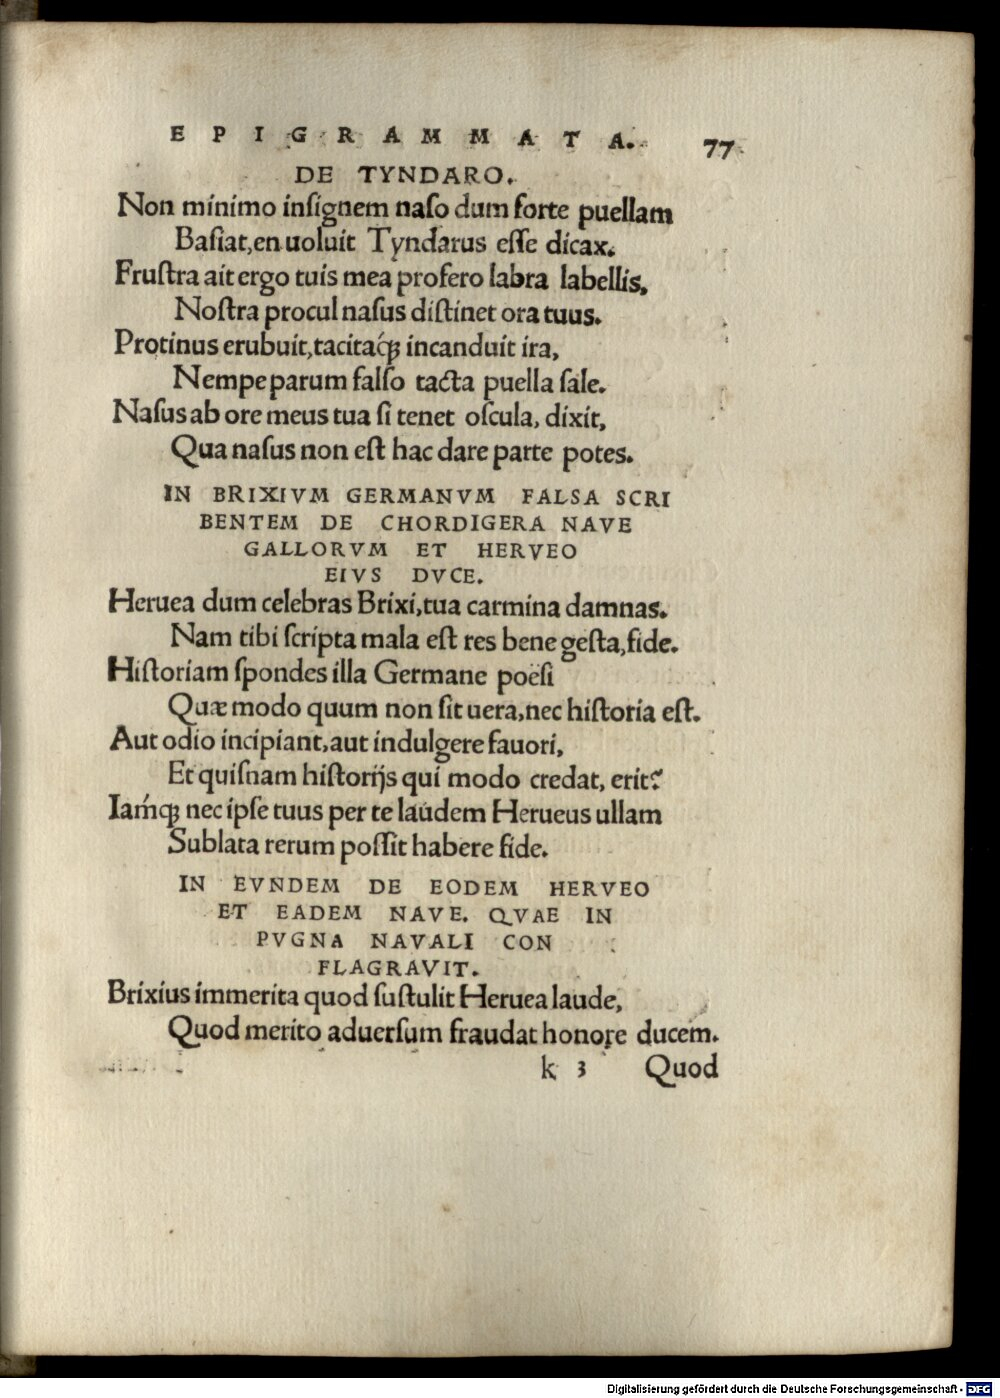 EPIGRAMMATA. 77
DE TYNDARO.
Non minimo inſignem naſo dum forte puellam
Baſiat, en uoluit Tyndarus eſſe dicax.
Fruſtra ait ergo tuis mea profero labra labellis,
Noſtra procul naſus diſtinet ora tuus.
Protinus erubuit, tacitaq́ꝫ incanduit ira,
Nempe parum falſo tacta puella ſale.
Naſus ab ore meus tua ſi tenet oſcula, dixit,
Qua naſus non eſt hac dare parte potes.
IN BRIXIVM GERMANVM FALSA SCRI
BENTEM DE CHORDIGERA NAVE
GALLORVM ET HERVEO
EIVS DVCE.
Heruea dum celebras Brixi, tua carmina damnas.
Nam tibi ſcripta mala eſt res bene geſta, fide.
Hiſtoriam ſpondes illa Germane poëſi
Quæ modo quum non ſit uera, nec hiſtoria eſt.
Aut odio incipiant, aut indulgere fauori,
Et quiſnam hiſtorijs qui modo credat, erit?
Iamq́ꝫ nec ipſe tuus per te laudem Herueus ullam
Sublata rerum poſſit habere fide.
IN EVNDEM DE EODEM HERVEO
ET EADEM NAVE. QVAE IN
PVGNA NAVALI CON
FLAGRAVIT.
Brixius immerita quod ſuſtulit Heruea laude,
Quod merito aduerſum fraudat honore ducem.
k 3 Quod
Digitalisierung gefördert durch die Deutsche Forschungsgemeinschaft - DFG